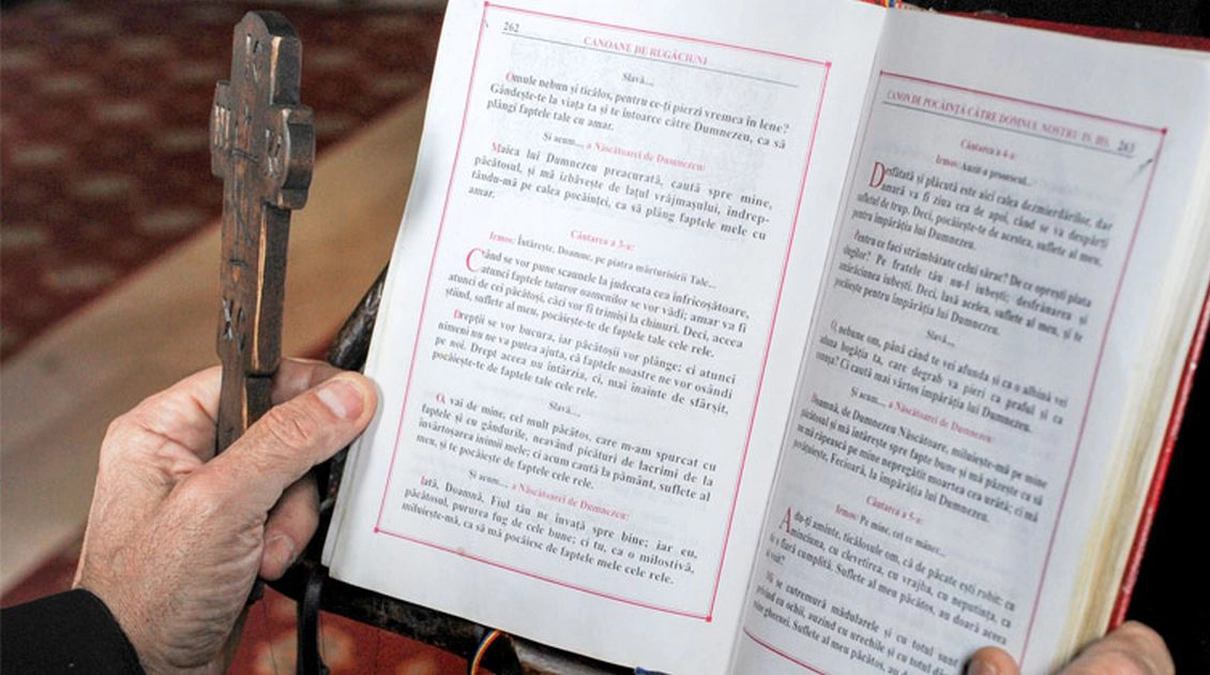 262
CANOANE DE RUGĂCIUNI
Slavă...
Omule nebun și ticălos, pentru ce-ți pierzi vremea în lene?
Gândește-te la viața ta și te întoarce către Dumnezeu, ca să
plângi faptele tale cu amar.
Și acum..., a Născătoarei de Dumnezeu:
Maica lui Dumnezeu preacurată, caută spre mine,
păcătosul, și mă izbăvește de lațul vrăjmașului, îndrep-
tându-mă pe calea pocăinței, ca să plâng faptele mele cu
amar.
Cântarea a 3-a:
Irmos: Întărește, Doamne, pe piatra mărturisirii Tale...
Când se vor pune scaunele la judecata cea înfricoșătoare,
atunci faptele tuturor oamenilor se vor vădi; amar va fi
atunci de cei păcătoși, căci vor fi trimiși la chinuri. Deci, aceea
știind, suflete al meu, pocăiește-te de faptele tale cele rele.
Drepții se vor bucura, iar păcătoșii vor plânge; ci atunci
nimeni nu ne va putea ajuta, că faptele noastre ne vor osândi
pe noi. Drept aceea nu întârzia, ci, mai înainte de sfârșit,
pocăiește-te de faptele tale cele rele.
Slavă...
O, vai de mine, cel mult păcătos, care m-am spurcat cu
faptele și cu gândurile, neavând picături de lacrimi de la
învârtoșarea inimii mele; ci acum caută la pământ, suflete al
meu, și te pocăiește de faptele cele rele.
Și acum..., a Născătoarei de Dumnezeu:
Iată, Doamnă, Fiul tău ne învață spre bine; iar eu,
păcătosul, pururea fug de cele bune; ci tu, ca o milostivă,
miluiește-mă, ca să mă pocăiesc de faptele mele cele rele.
CANON DE POCĂINȚĂ CĂTRE DOMNUL NOSTRU IS. HS. 263
Cântarea a 4-a:
Irmos: Auzit-a proorocul...
Desfătată și plăcută este aici calea dezmierdărilor, dar
amară va fi ziua cea de apoi, când se va despărți
sufletul de trup. Deci, pocăiește-te de acestea, suflete al meu,
pentru împărăția lui Dumnezeu.
Pentru ce faci strâmbătate celui sărac? De ce oprești plata
slugilor? Pe fratele tău nu-l iubești; desfrânarea și
mândria iubești. Deci, lasă acelea, suflete al meu, și te
pocăiește pentru împărăția lui Dumnezeu.
Slavă...
O, nebune om, până când te vei afunda și ca o albină vei
aduna bogăția ta, care degrab va pieri ca praful și ca
cenușa? Ci caută mai vârtos împărăția lui Dumnezeu.
Și acum..., a Născătoarei de Dumnezeu:
Doamnă, de Dumnezeu Născătoare, miluiește-mă pe mine
păcătosul și mă întărește spre fapte bune și mă păzește ca să
nu mă răpească pe mine nepregătit moartea cea urâtă; ci mă
povățuiește, Fecioară, la împărăția lui Dumnezeu.
Cântarea a 5-a:
Irmos: Pe mine, cel ce mânec...
Adu-ți aminte, ticălosule om, că de păcate ești robit: cu
minciuna, cu clevetirea, cu vrajba, cu neputința, ca
o fiară cumplită. Suflete al meu păcătos, au doară aceea
ai voit?
Mi se cutremură mădularele și cu totul sunt
privind cu ochii, auzind cu urechile și cu totul
gheenei. Suflete al meu păcătos, au